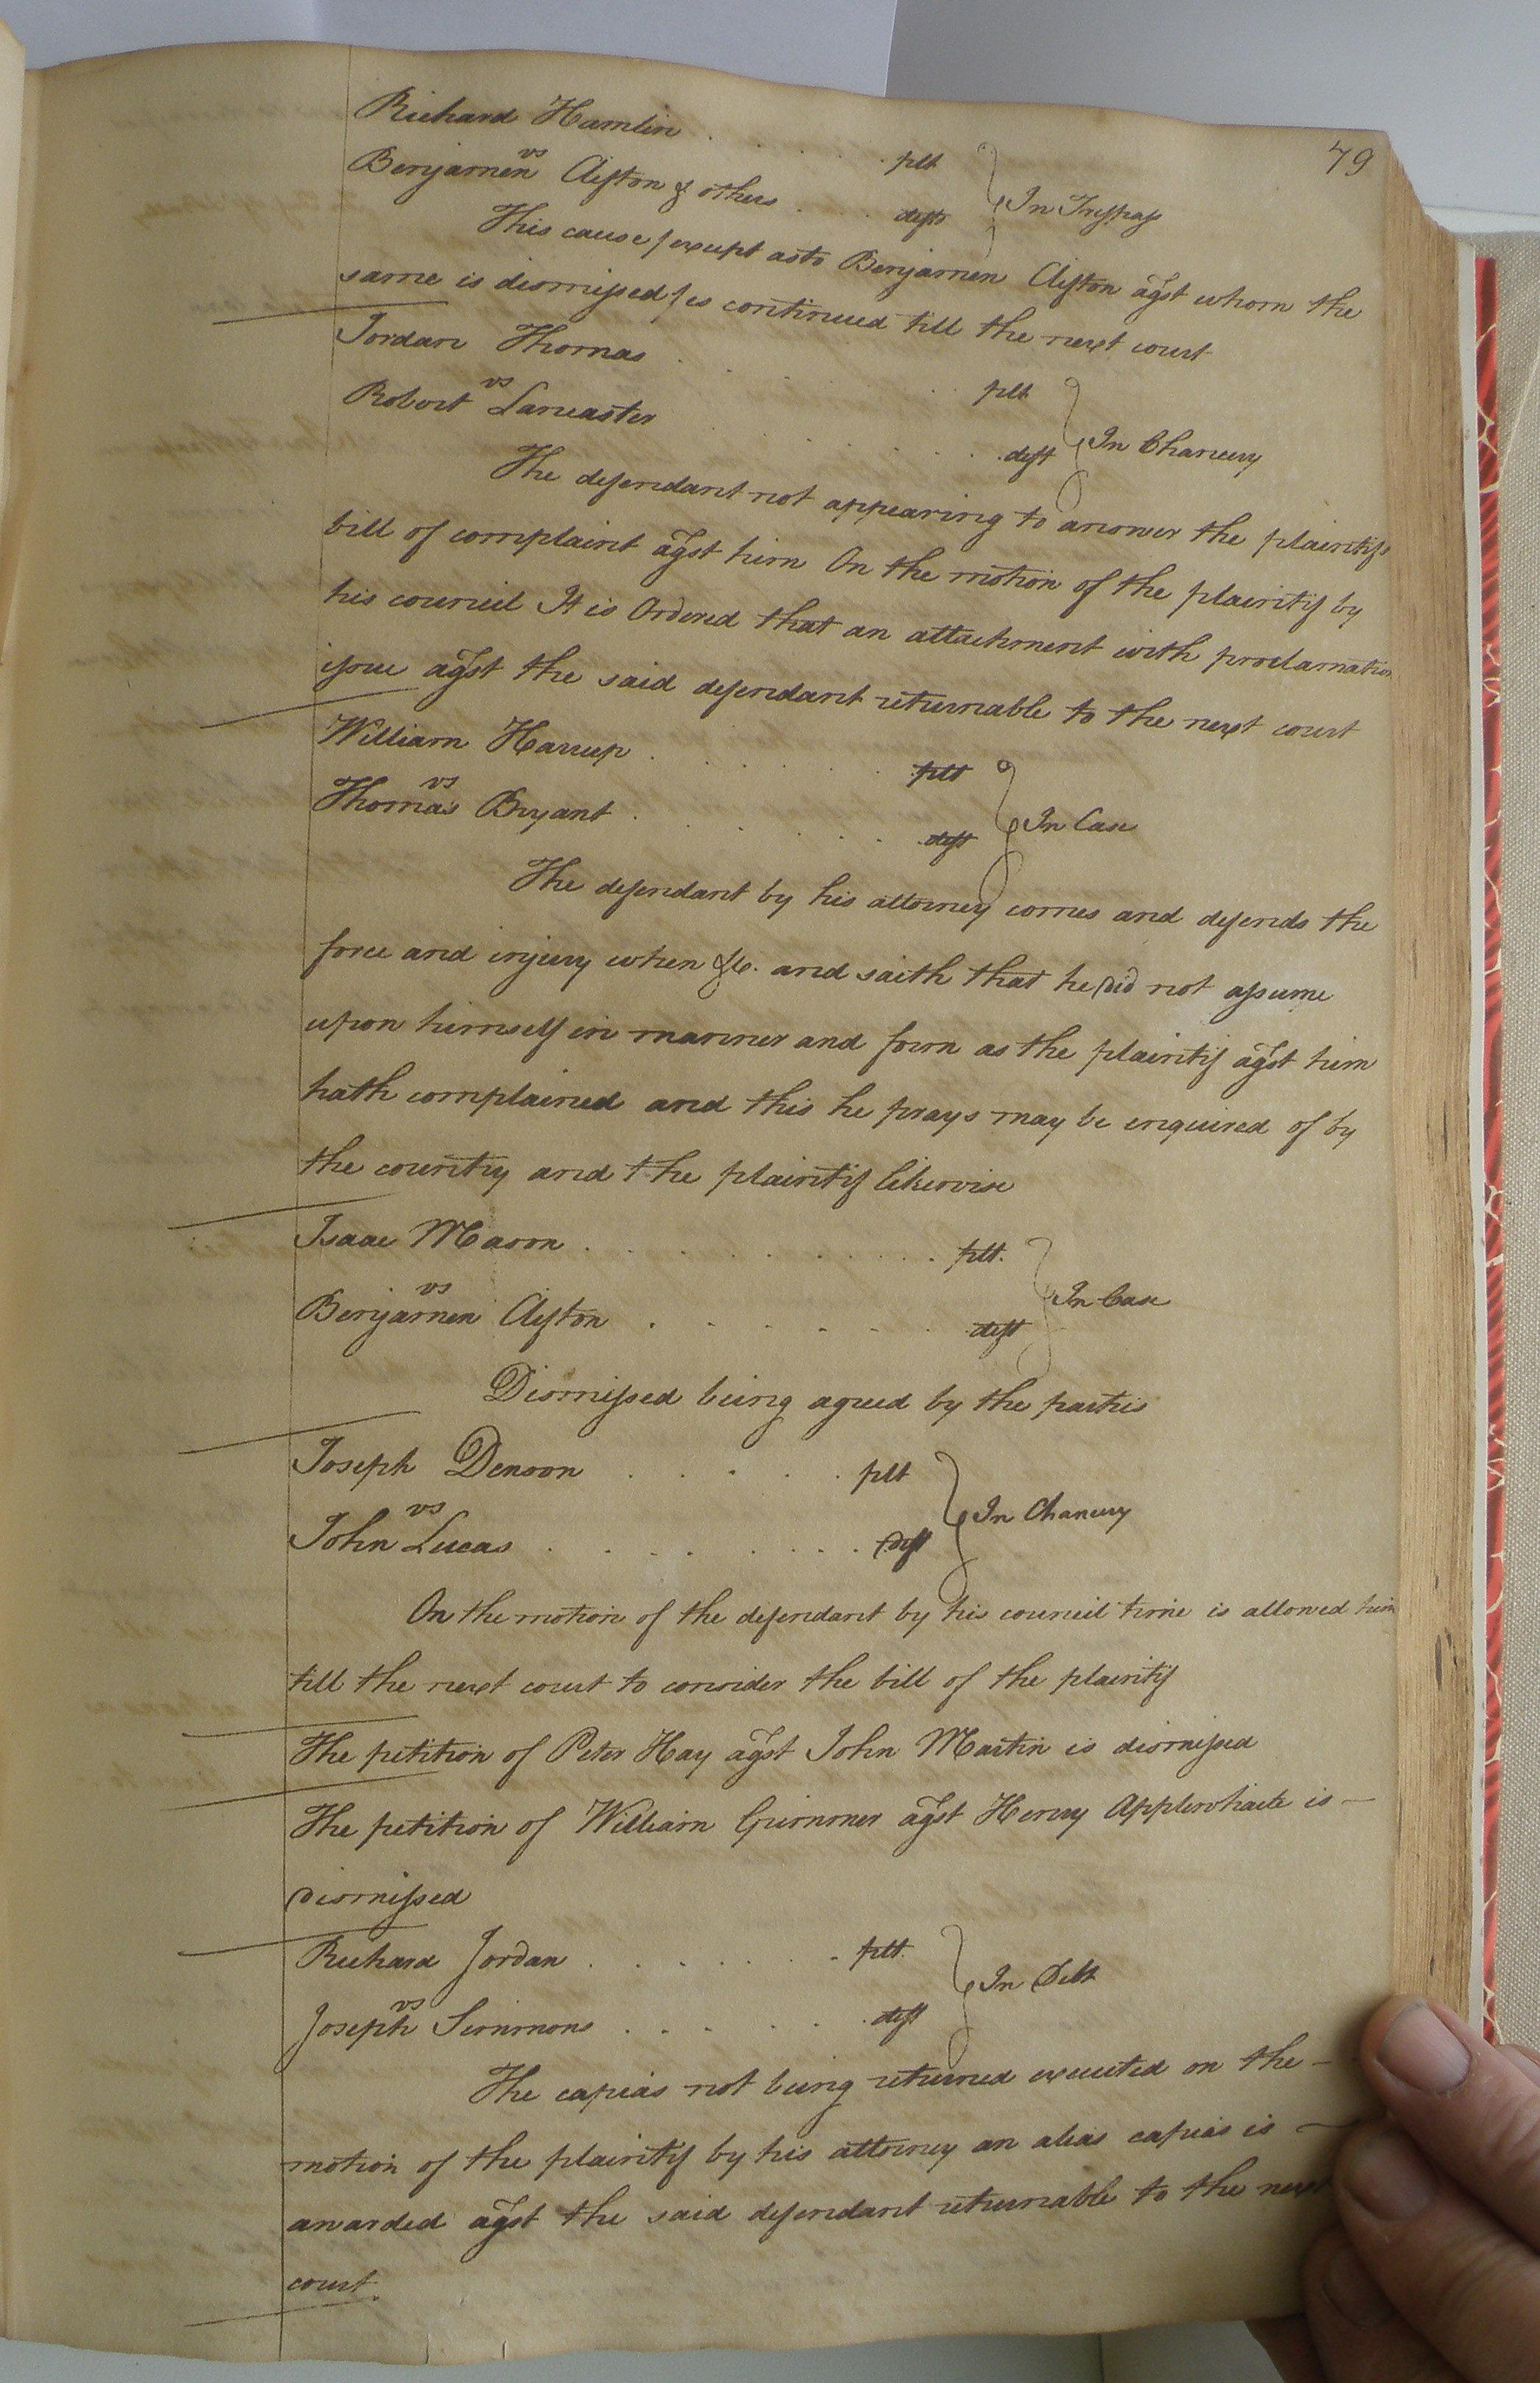 79
Richard Hamlin . . . . . plt
vs
Benjamen Clifton & others . . . defts } In Trespass
This cause (except as to Benjamen Clifton agst whom the
same is dismissed) is continued till the next court
Jordan Thomas . . . . . plt
vs
Robert Lancaster . . . . . . deft } In Chancery
The defendant not appearing to answer the plaintifs
bill of complaint agst him On the motion of the plaintif by
his council It is Ordered that an attachment with proclamation
issue agst the said defendant returnable to the next court
William Harrup . . . . . . plt
vs
Thomas Bryant . . . . . . deft } In Case
The defendant by his attorney comes and defends the
force and injury when &c. and saith that he did not assume
upon himself in manner and form as the plaintif agst him
hath complained and this he prays may be enquired of by
the country and the plaintif likewise
Isaac Mason . . . . . . . . plt.
vs
Benjamen Clifton . . . . . . . deft } In Case
Dismissed being agreed by the parties
Joseph Denson . . . . . plt
vs
John Lucas . . . . . . . . deft } In Chancery
On the motion of the defendant by his council time is allowed him
till the next court to consider the bill of the plaintif
The petition of Peter Hay agst John Martin is dismissed
The petition of William Grimmer agst Henry Applewhaite is —
dismissed
Richard Jordan . . . . . . plt.
vs
Joseph Simmons . . . . . . deft } In Debt
The capias not being returned executed on the —
motion of the plaintif by his attorney an alias capias is —
awarded agst the said defendant returnable to the next
court.